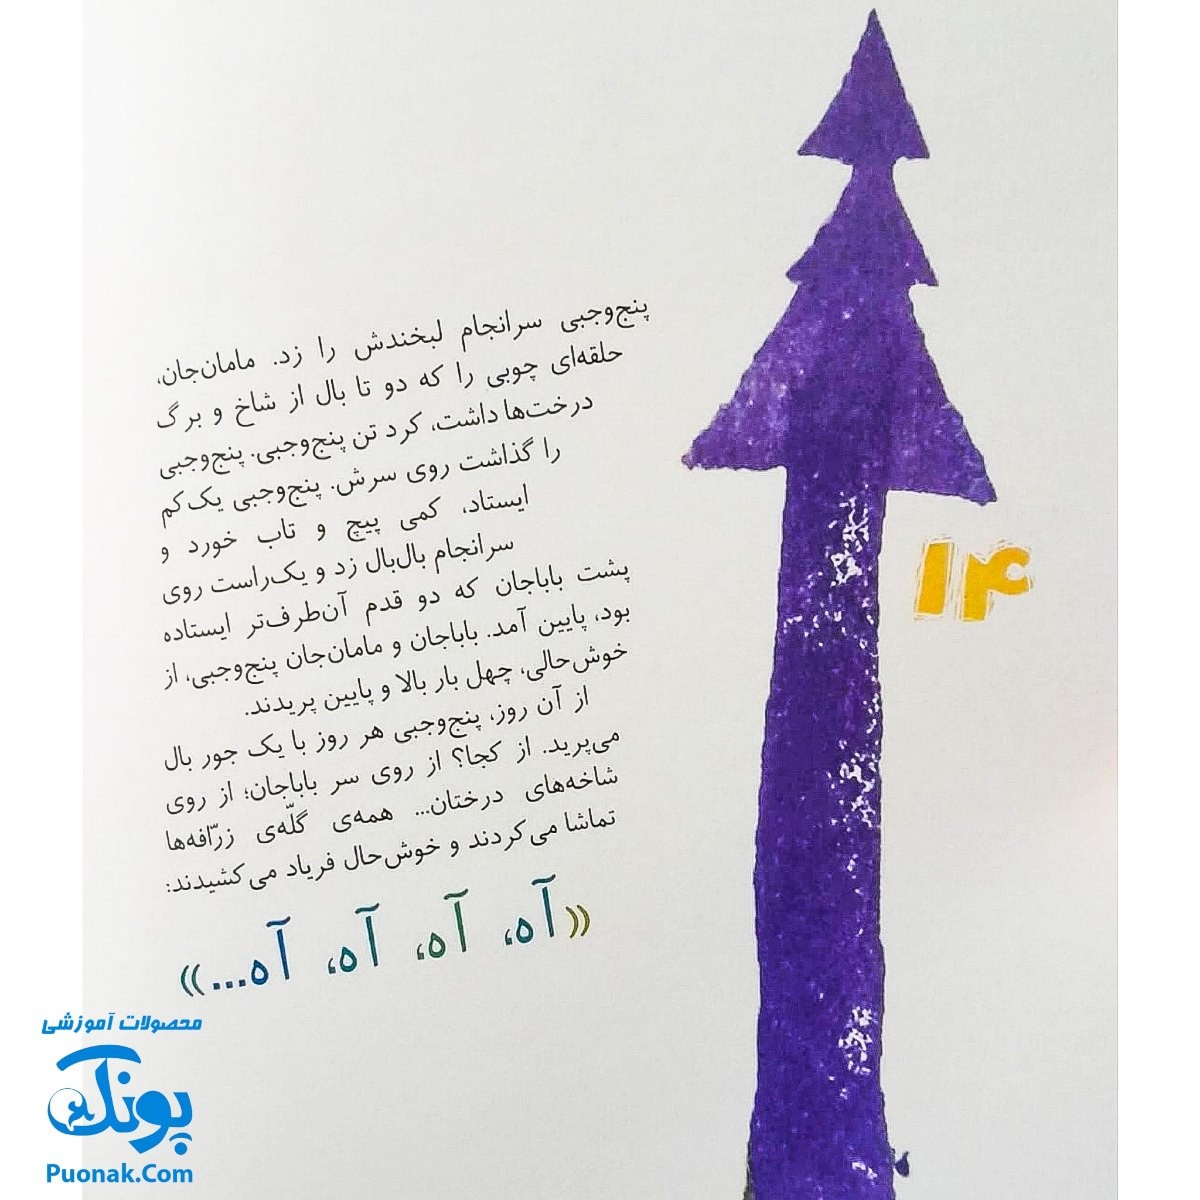 پنج‌وجبی سرانجام لبخندش را زد. مامان‌جان،
حلقه‌ای چوبی را که دو تا بال از شاخ و برگ
درخت‌ها داشت، کرد تن پنج‌وجبی. پنج‌وجبی
را گذاشت روی سرش. پنج‌وجبی یک‌کم
ایستاد، کمی پیچ و تاب خورد و
سرانجام بال‌بال زد و یک‌راست روی
پشت باباجان که دو قدم آن‌طرف‌تر ایستاده
بود، پایین آمد. باباجان و مامان‌جان پنج‌وجبی، از
خوش‌حالی، چهل بار بالا و پایین پریدند.
از آن روز، پنج‌وجبی هر روز با یک جور بال
می‌پرید. از کجا؟ از روی سر باباجان؛ از روی
شاخه‌های درختان... همه‌ی گلّه‌ی زرّافه‌ها
تماشا می‌کردند و خوش‌حال فریاد می‌کشیدند:
«آه، آه، آه، آه...»
۱۴
محصولات آموزشی
پونک
Puonak.Com